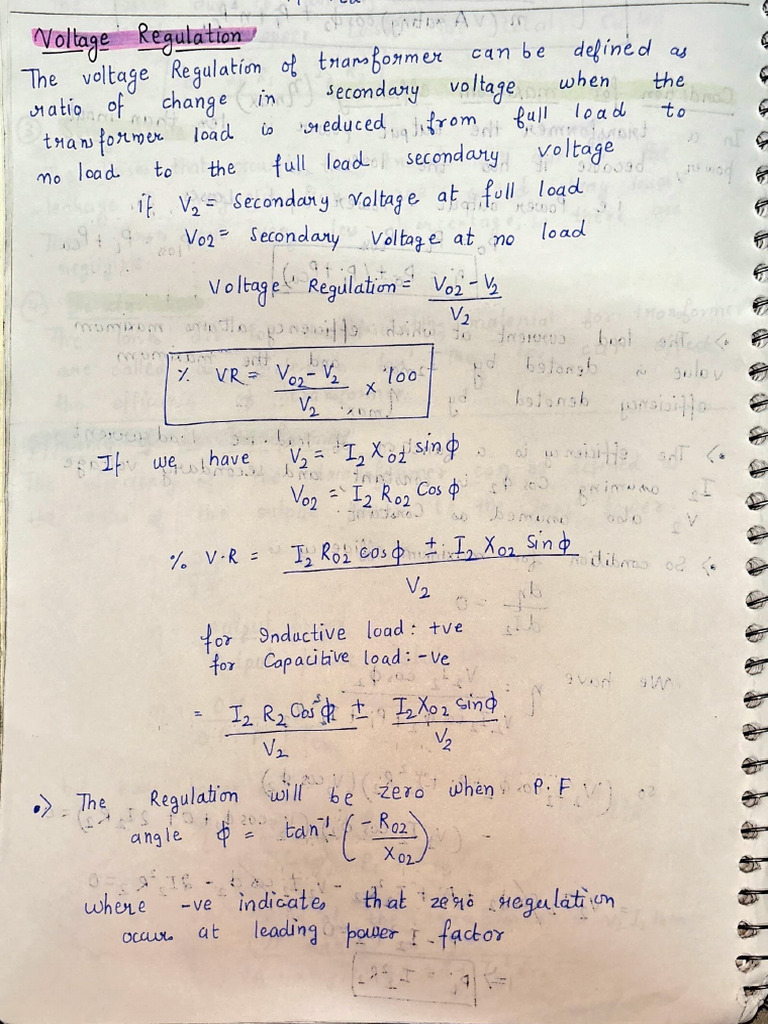 Voltage Regulation
The voltage Regulation of transformer can be defined as
ratio of change in secondary voltage when the
transformer load is reduced from full load to
no load to the full load secondary voltage
if V₂ = Secondary Voltage at full load
V₀₂ = Secondary Voltage at no load
Voltage Regulation = (V₀₂ - V₂) / V₂
% VR = (V₀₂ - V₂) / V₂ × 100
If we have V₂ = I₂ X₀₂ sin ϕ
V₀₂ = I₂ R₀₂ Cos ϕ
% V.R = (I₂ R₀₂ cos ϕ ± I₂ X₀₂ Sin ϕ) / V₂
for Inductive load : +ve
for Capacitive load : -ve
= (I₂ R₂ Cos ϕ) / V₂ ± (I₂ X₀₂ sin ϕ) / V₂
•> The Regulation will be zero when P.F
angle ϕ = tan⁻¹ (-R₀₂ / X₀₂)
where -ve indicates that zero regulation
occurs at leading power factor